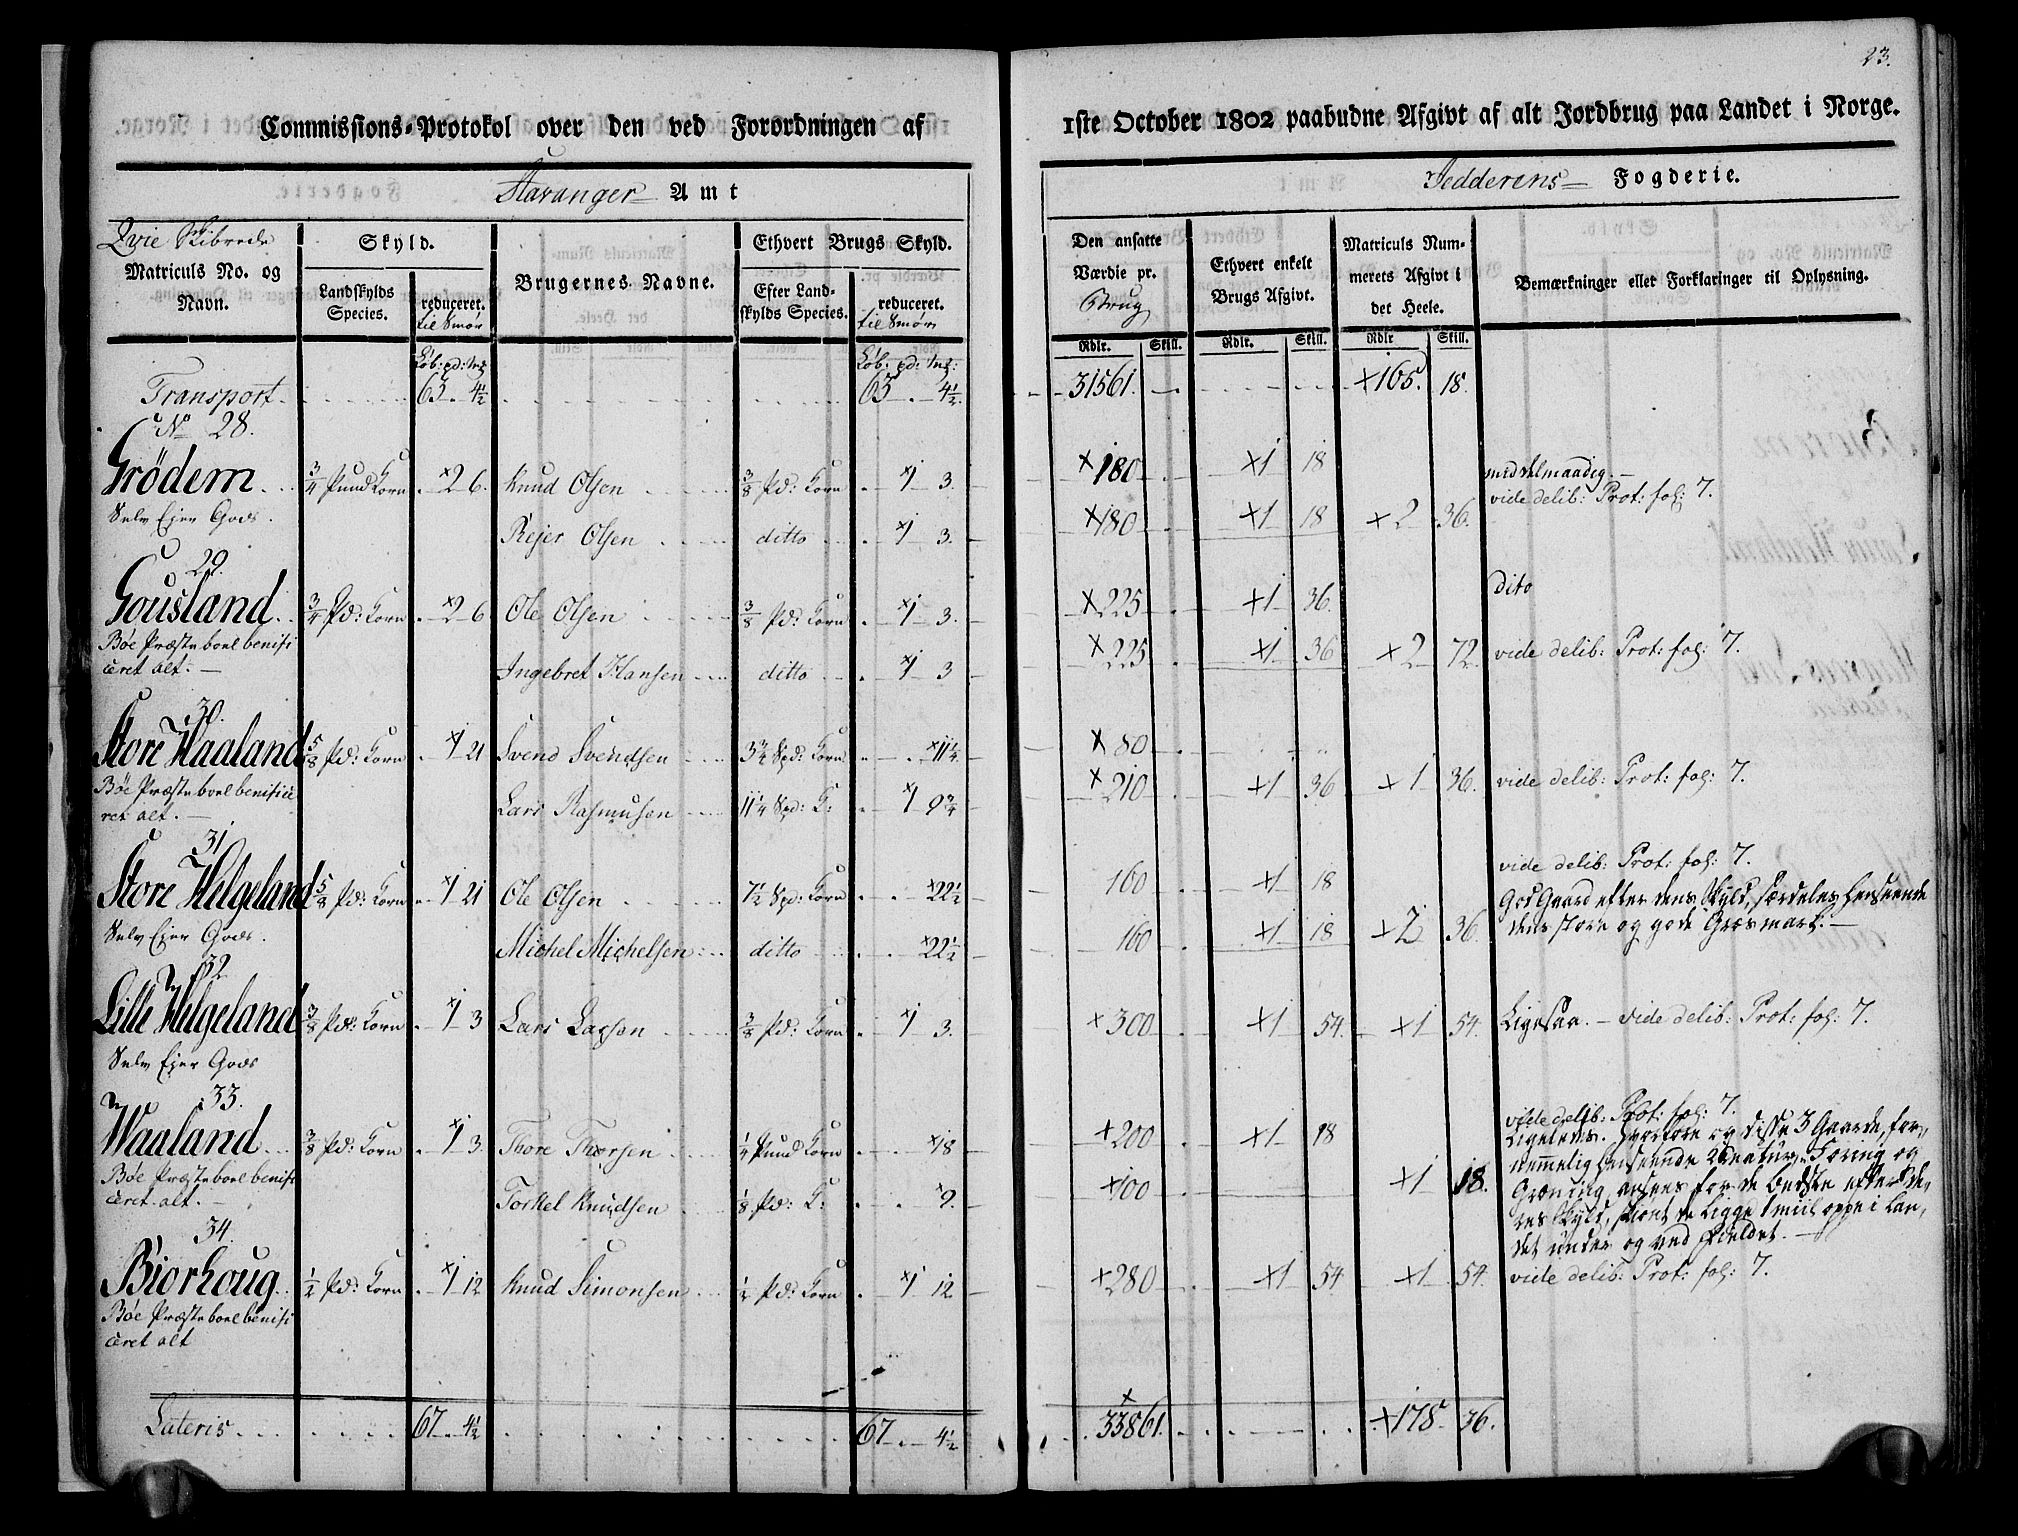 23.
Commissions-Protokol over den ved Forordningen af 1ste October 1802 paabudne Afgivt af alt Jordbrug paa Landet i Norge.
Stavanger Amt Jedderens Fogderie.
Qvie Skibrede
Matriculs No. og Navn.
Skyld.
Landskylds Species.
reduceret. til Smør
Brugernes Navne.
Ethvert Brugs Skyld.
Efter Landskylds Species.
reduceret. til Smør
Den ansatte Værdie pr. Brug
Ethvert enkelt Brugs Afgivt.
Matriculs Nummerets Afgivt i det Heele.
Bemærkninger eller Forklaringer til Oplysning.
Rdlr. Skill. Rdlr. Skill. Rdlr Skill.
Løb: pd: mk Løb: pd: mk:
Transport 63 . 4½ 63 . 4½ 31561. +165. 18.
No 28.
Grödem ¾ Pund Korn ×2 6. Knud Olsen ⅜ Pd: Korn ×1 3. ×180 ×1 18 middelmaadig.
vide delib: Prot: fol: 7.
Selv Ejer Gods. Rejer Olsen ditto ×1 3. ×180 ×1 18 ×2 36.
29.
Gousland ¾ Pd: Korn ×2 6 Ole Olsen ⅜ Pd: Korn ×1 3. ×225 ×1 36. dito
Bøe Præsteboel benifi
ceret alt. Ingebret Hansen ditto ×1 3 ×225 ×1 36 ×2 72 vide delib: Prot: fol: 7.
30.
Store Haaland ⅝ Pd: Korn ×1 21 Svend Svendsen 3¾ Spd: Korn ×11¼ ×80
Bøe Præsteboel benifice
ret alt. Lars Rasmusen 11¼ Spd: K: ×1 9¾ ×210 ×1 36 ×1 36. vide delib: Prot: fol: 7.
31
Store Helgeland ⅝ Pd: Korn ×1 21 Ole Olsen 7½ Spd: Korn ×22½ 160 ×1 18 vide delib: Prot: fol: 7.
God Gaard efter dens Skyld, særdeles henseende
Selv Ejer Gods. Michel Michelsen ditto ×22½ 160 ×1 18 ×2 36. dens store og gode Græsmark.
32
Lille Helgeland ⅜ Pd: Korn ×1 3 Lars Larsen ⅜ Pd: Korn ×1 3. ×300 ×1 54. ×1 54. Ligesaa. vide delib: Prot: fol: 7.
Selv Ejer Gods
33.
Waaland ⅜ Pd: Korn ×1 3. Thore Thorsen ¼ Pund Korn ×18 ×200 ×1 18 vide delib: Prot: fol: 7.
Bøe Præsteboel benifi
ceret alt. Torkel Knudsen ⅛ Pd: K: ×9. ×100 ×1 18.
Ligeledes. og disse 3 Gaarde, for-
nemmelig henseende og
Græning, ansees for de bedste efter de-
res Skyld, skiønt de ligge 1 miil oppe i Lan-
det under og ved Fieldet.
34.
Biorhoug ½ Pd: Korn ×1 12 Knud Simonsen ½ Pd: Korn ×1 12 ×280 ×1 54 ×1 54. vide delib: Prot: fol: 7.
Bøe Præsteboel benifi
ceret alt
Lateris 67 . 4½ 67 . 4½ × 33861. +178. 36.